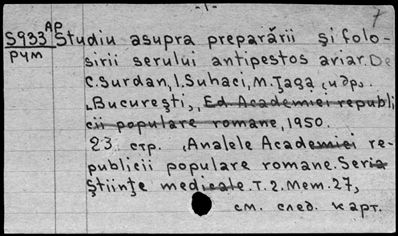 -1-
7
S933 AP Studiu asupra preparării şi folo-
РУМ sirii serului antipestos aviar. De
C. Surdan, I. Suhaci, M. Ţaga (и др.
„Bucureşti", Ed. Academiei republi
cii populare romane, 1950.
23 стр. (Analele Academiei re-
publicii populare romane. Seria
Ştiinţe medicale. T. 2. Mem. 27,
см. след. карт.